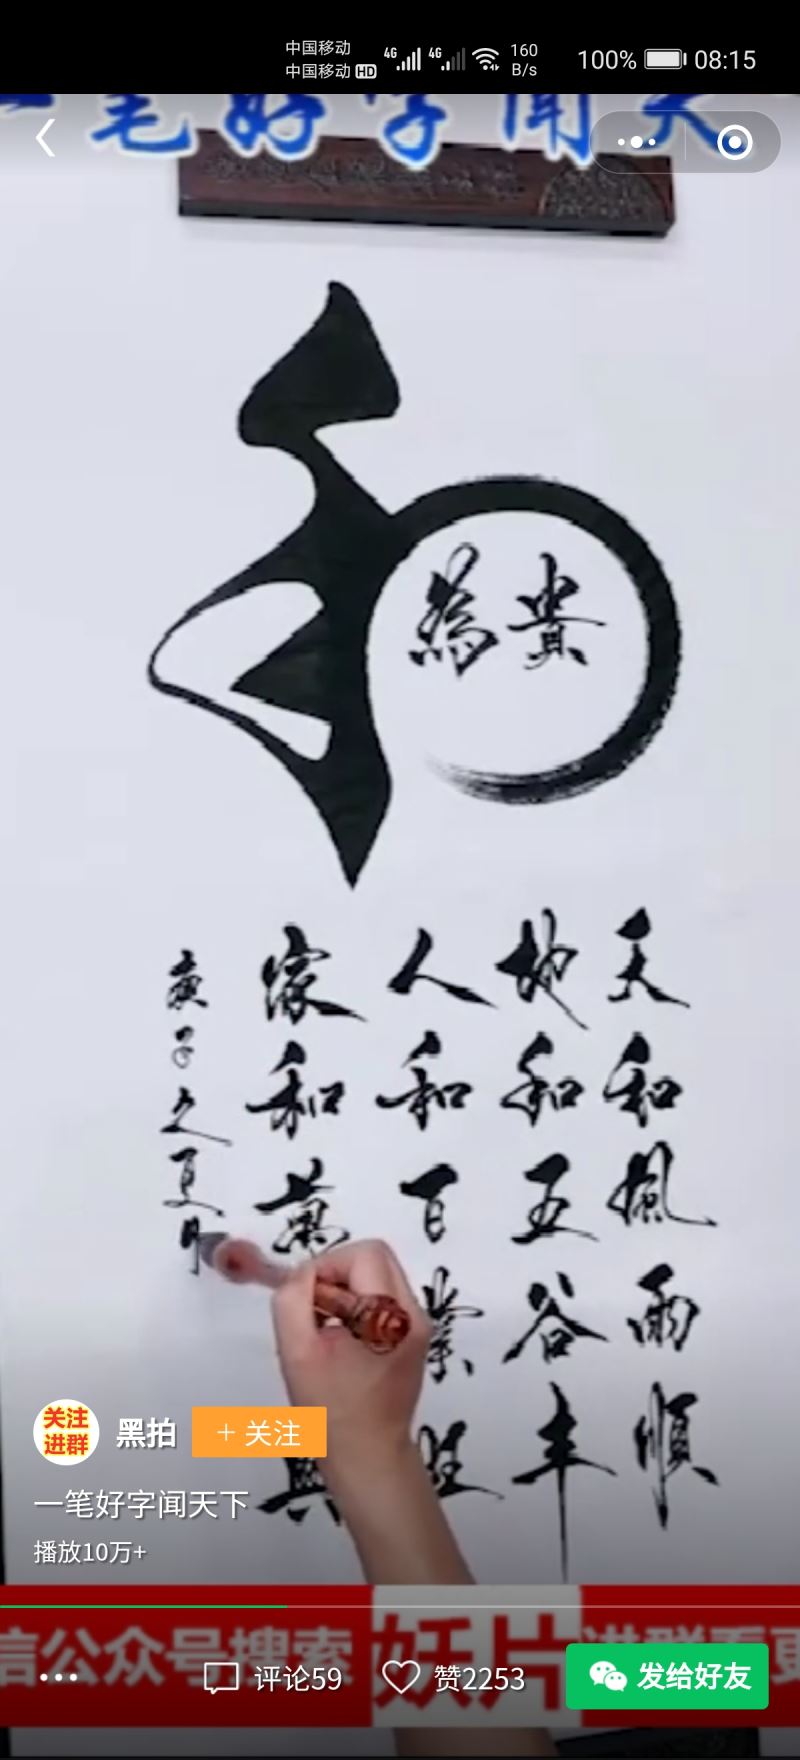 中国移动
中国移动 HD
4G
4G
160
B/s
100%
08:15
一笔好字闻天
和
為貴
天和風雨順
地和五谷丰
人和百業旺
家和萬興
庚子之夏月
关注
进群
黑拍
+ 关注
一笔好字闻天下
播放10万+
信公众号搜索 妖片 进群看更
评论59
赞2253
发给好友